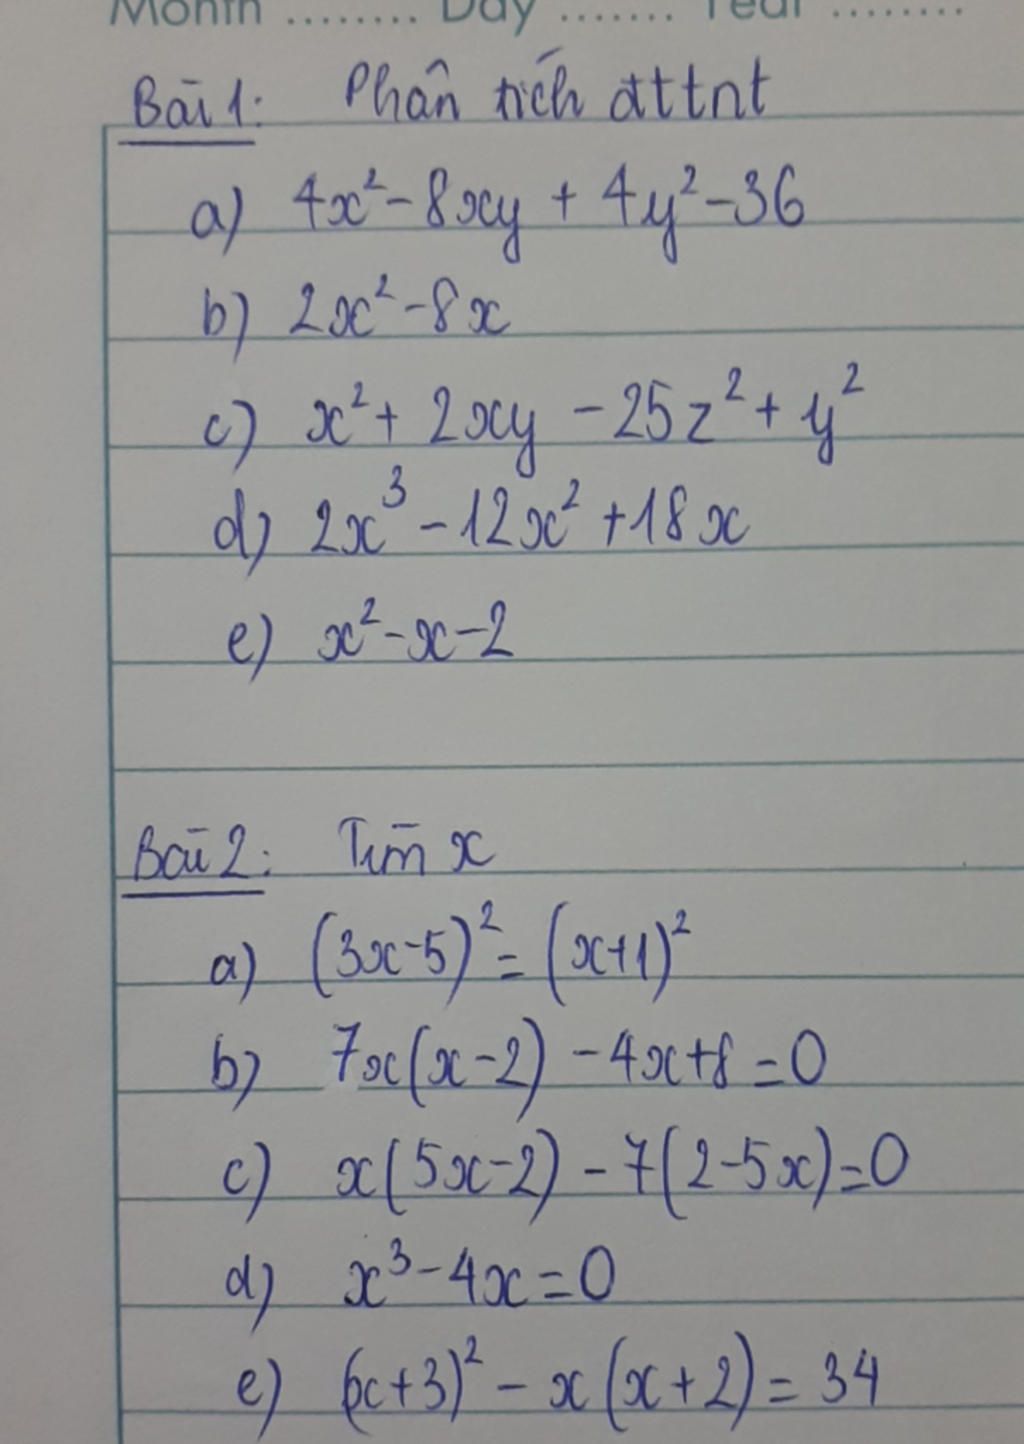 Month ........ Day ....... Year ........
Bài 1: Phân tích đttnt
a) 4x² - 8xy + 4y² - 36
b) 2x² - 8x
c) x² + 2xy - 25z² + y²
d) 2x³ - 12x² + 18x
e) x² - x - 2
Bài 2: Tìm x
a) (3x-5)² = (x+1)²
b) 7x(x-2) - 4x+8 = 0
c) x(5x-2) - 7(2-5x) = 0
d) x³ - 4x = 0
e) (x+3)² - x(x+2) = 34